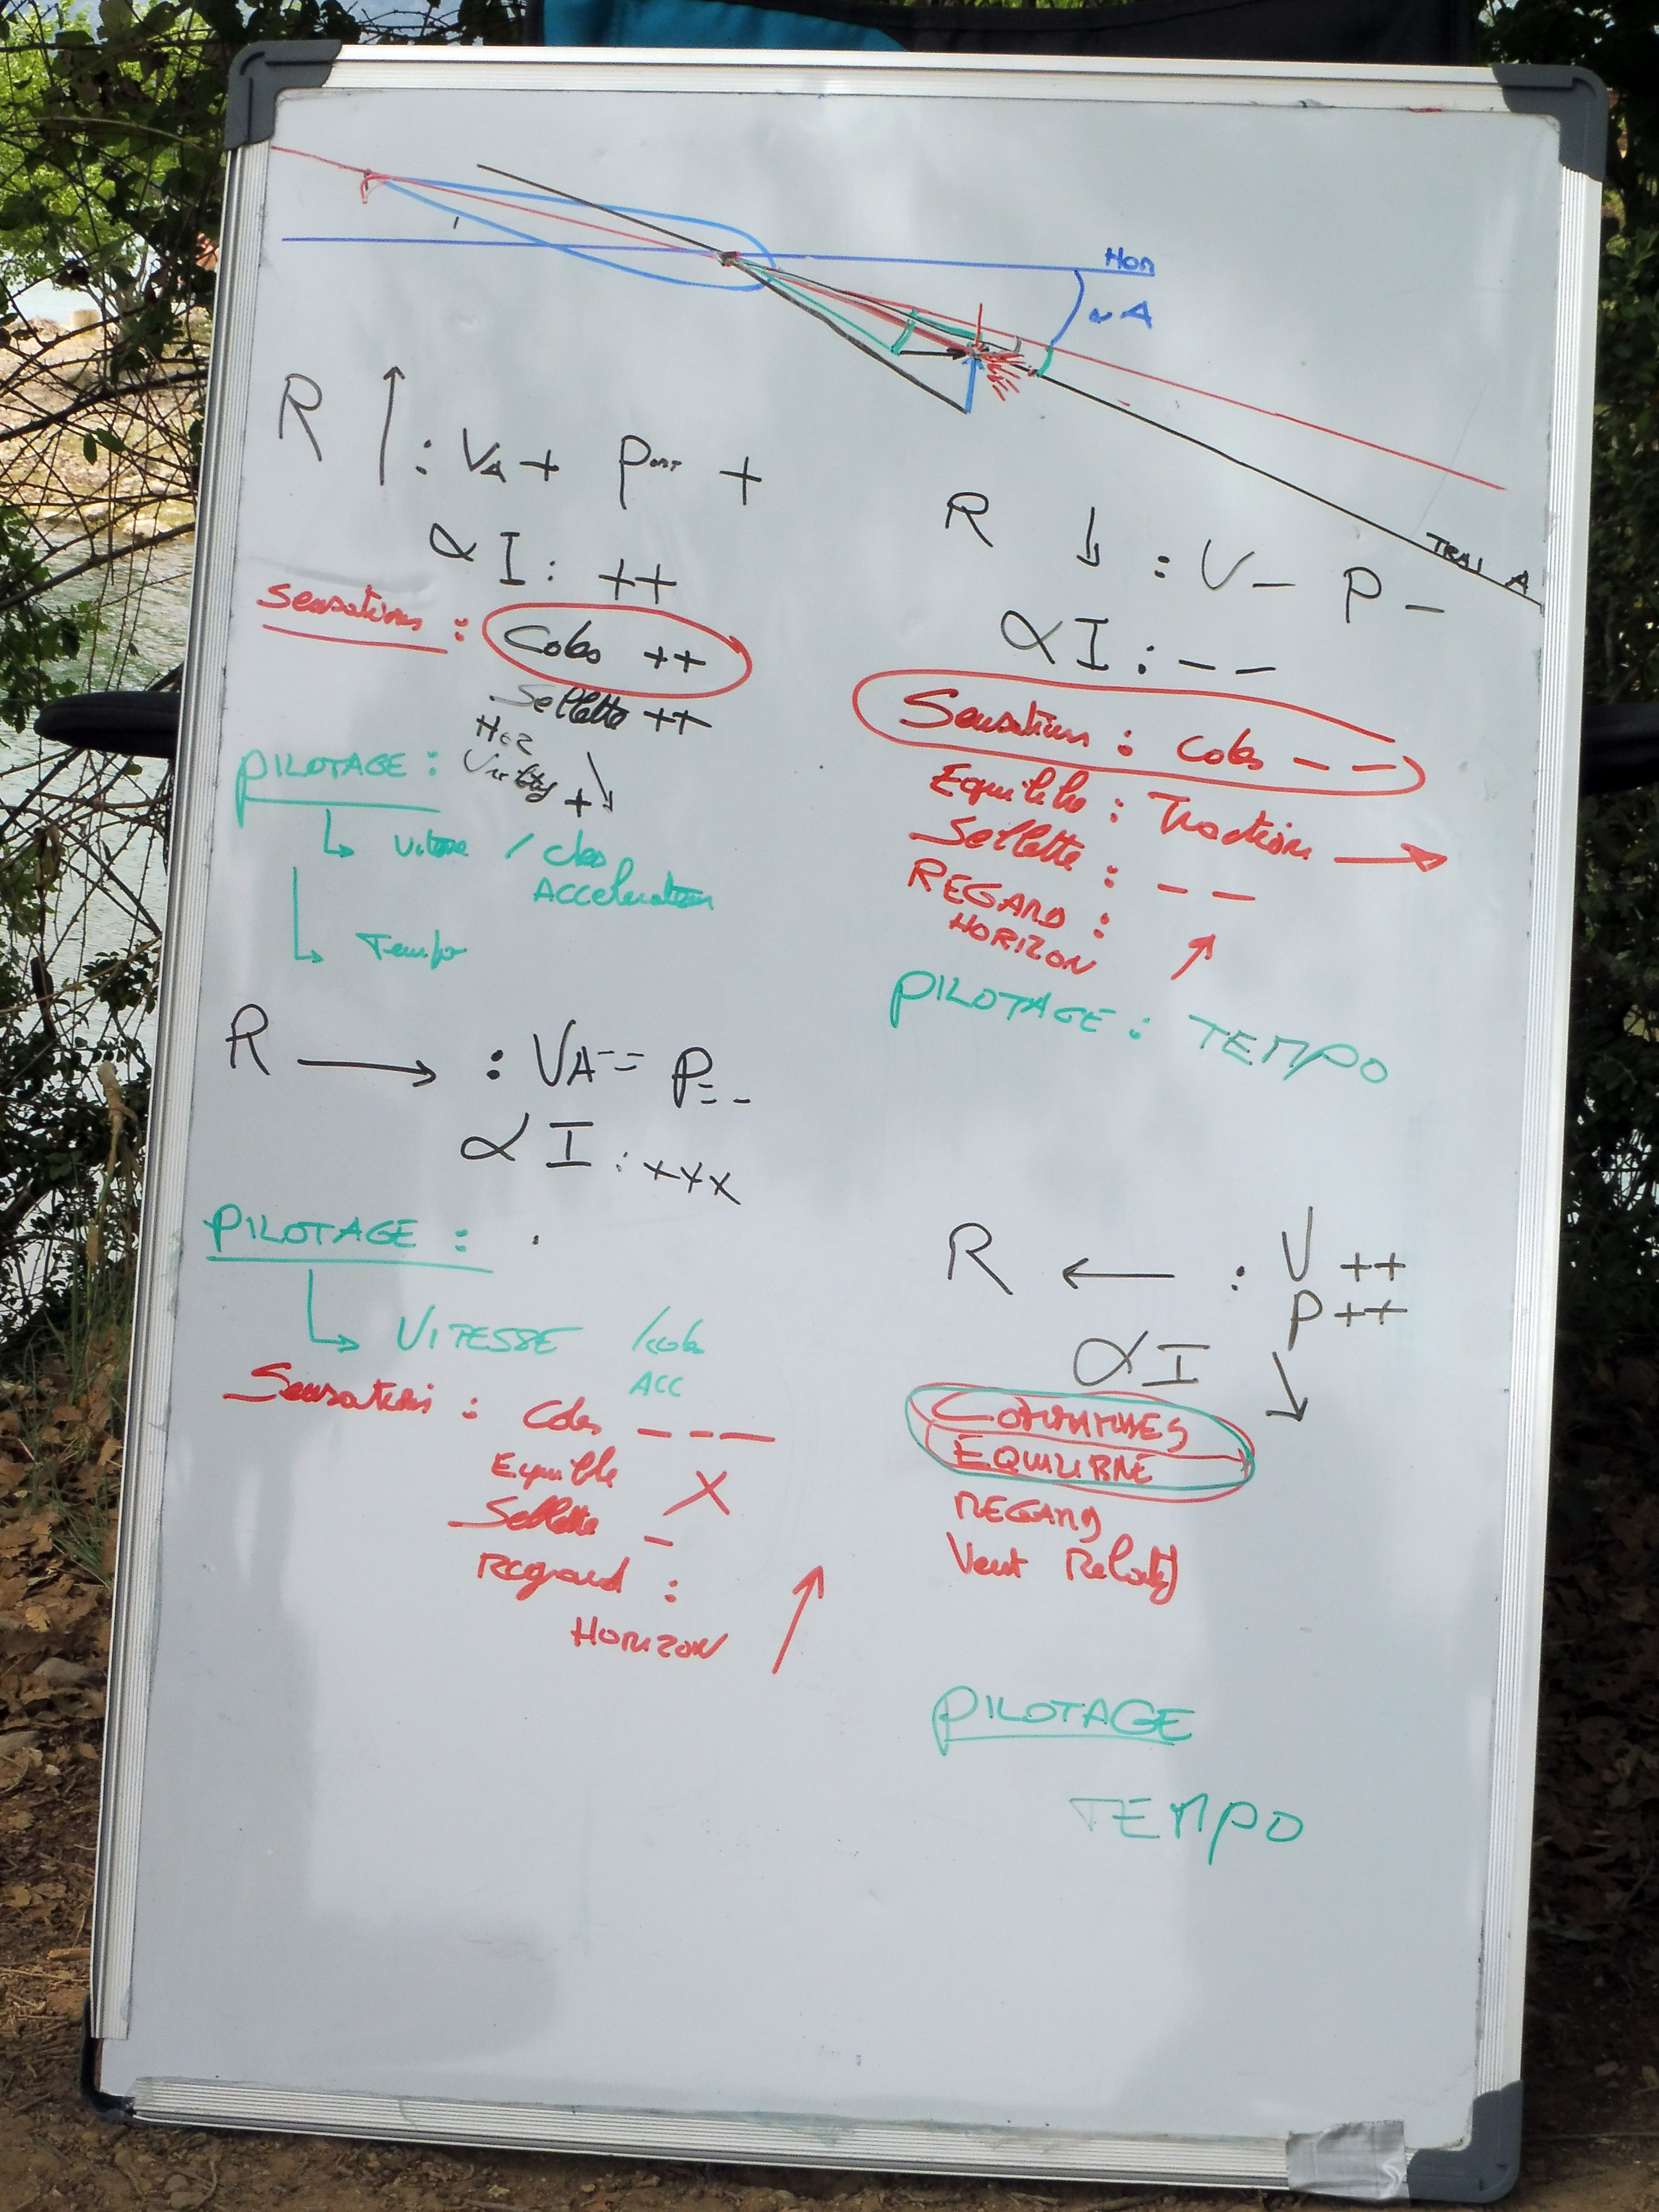 Hori
α A
TRAJ A
R ↑ : VA + Port +
α I : ++
Sensations : Cdes ++
Sellette ++
Hoz ↘
+
PILOTAGE :
↳ Vitesse / cdes
Acceleration
↳ Tempo
R ↓ : V - P -
α I : - -
Sensations : Cdes - -
Equilibre : Traction →
Sellette : - -
REGARD :
HORIZON ↗
PILOTAGE : TEMPO
R → : VA = = P = -
α I : +++
PILOTAGE :
↳ VITESSE / cdes
ACC
Sensations : Cdes - - -
Equilibre X
Sellette -
Regard :
HORIZON ↗
R ← : V ++
P ++
α I ↘
COMMANDES
EQUILIBRE
REGARD
Vent Relatif
PILOTAGE
TEMPO